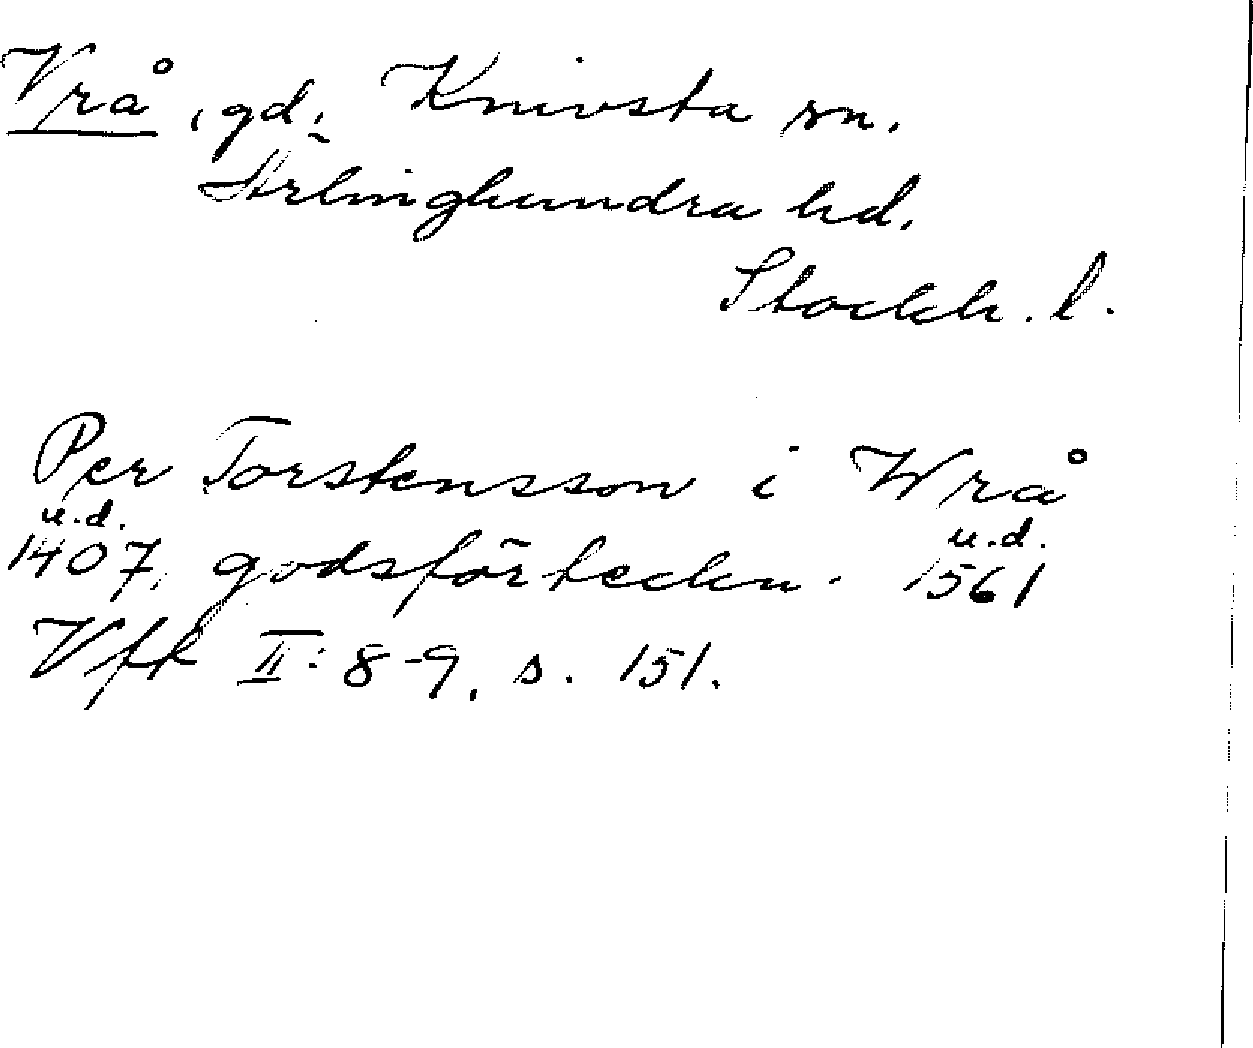 Vrå, gd; Knivsta sn.
Ärlinghundra hd.
Stockh. l.
Per Torstensson i Wrå
u.d. u.d.
1407, godsförteckn. 1561
Vfk II: 8-9, s. 151.